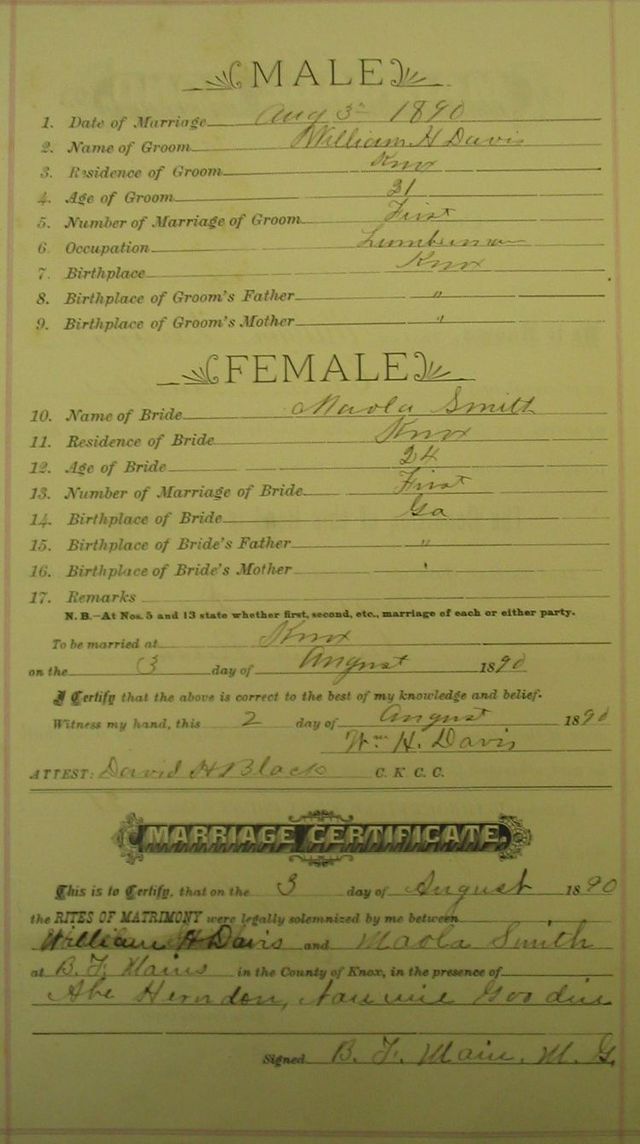 MALE
1. Date of Marriage Aug 3rd 1890
2. Name of Groom William H Davis
3. Residence of Groom Knox
4. Age of Groom 21
5. Number of Marriage of Groom First
6. Occupation Lumberman
7. Birthplace Knox
8. Birthplace of Groom's Father "
9. Birthplace of Groom's Mother "
FEMALE
10. Name of Bride Maola Smith
11. Residence of Bride Knox
12. Age of Bride 24
13. Number of Marriage of Bride First
14. Birthplace of Bride Ga
15. Birthplace of Bride's Father "
16. Birthplace of Bride's Mother '
17. Remarks
N. B.—At Nos. 5 and 13 state whether first, second, etc., marriage of each or either party.
To be married at Knox
on the 3 day of August 1890
I Certify that the above is correct to the best of my knowledge and belief.
Witness my hand, this 2 day of August 1890
Wm H. Davis
ATTEST: David H Black C. K. C. C.
MARRIAGE CERTIFICATE.
This is to Certify, that on the 3 day of August 1890
the RITES OF MATRIMONY were legally solemnized by me between
William H Davis and Maola Smith
at B. F. Mains in the County of Knox, in the presence of
Abe Herndon, Nannie Goodin
Signed B. F. Main, M. G.